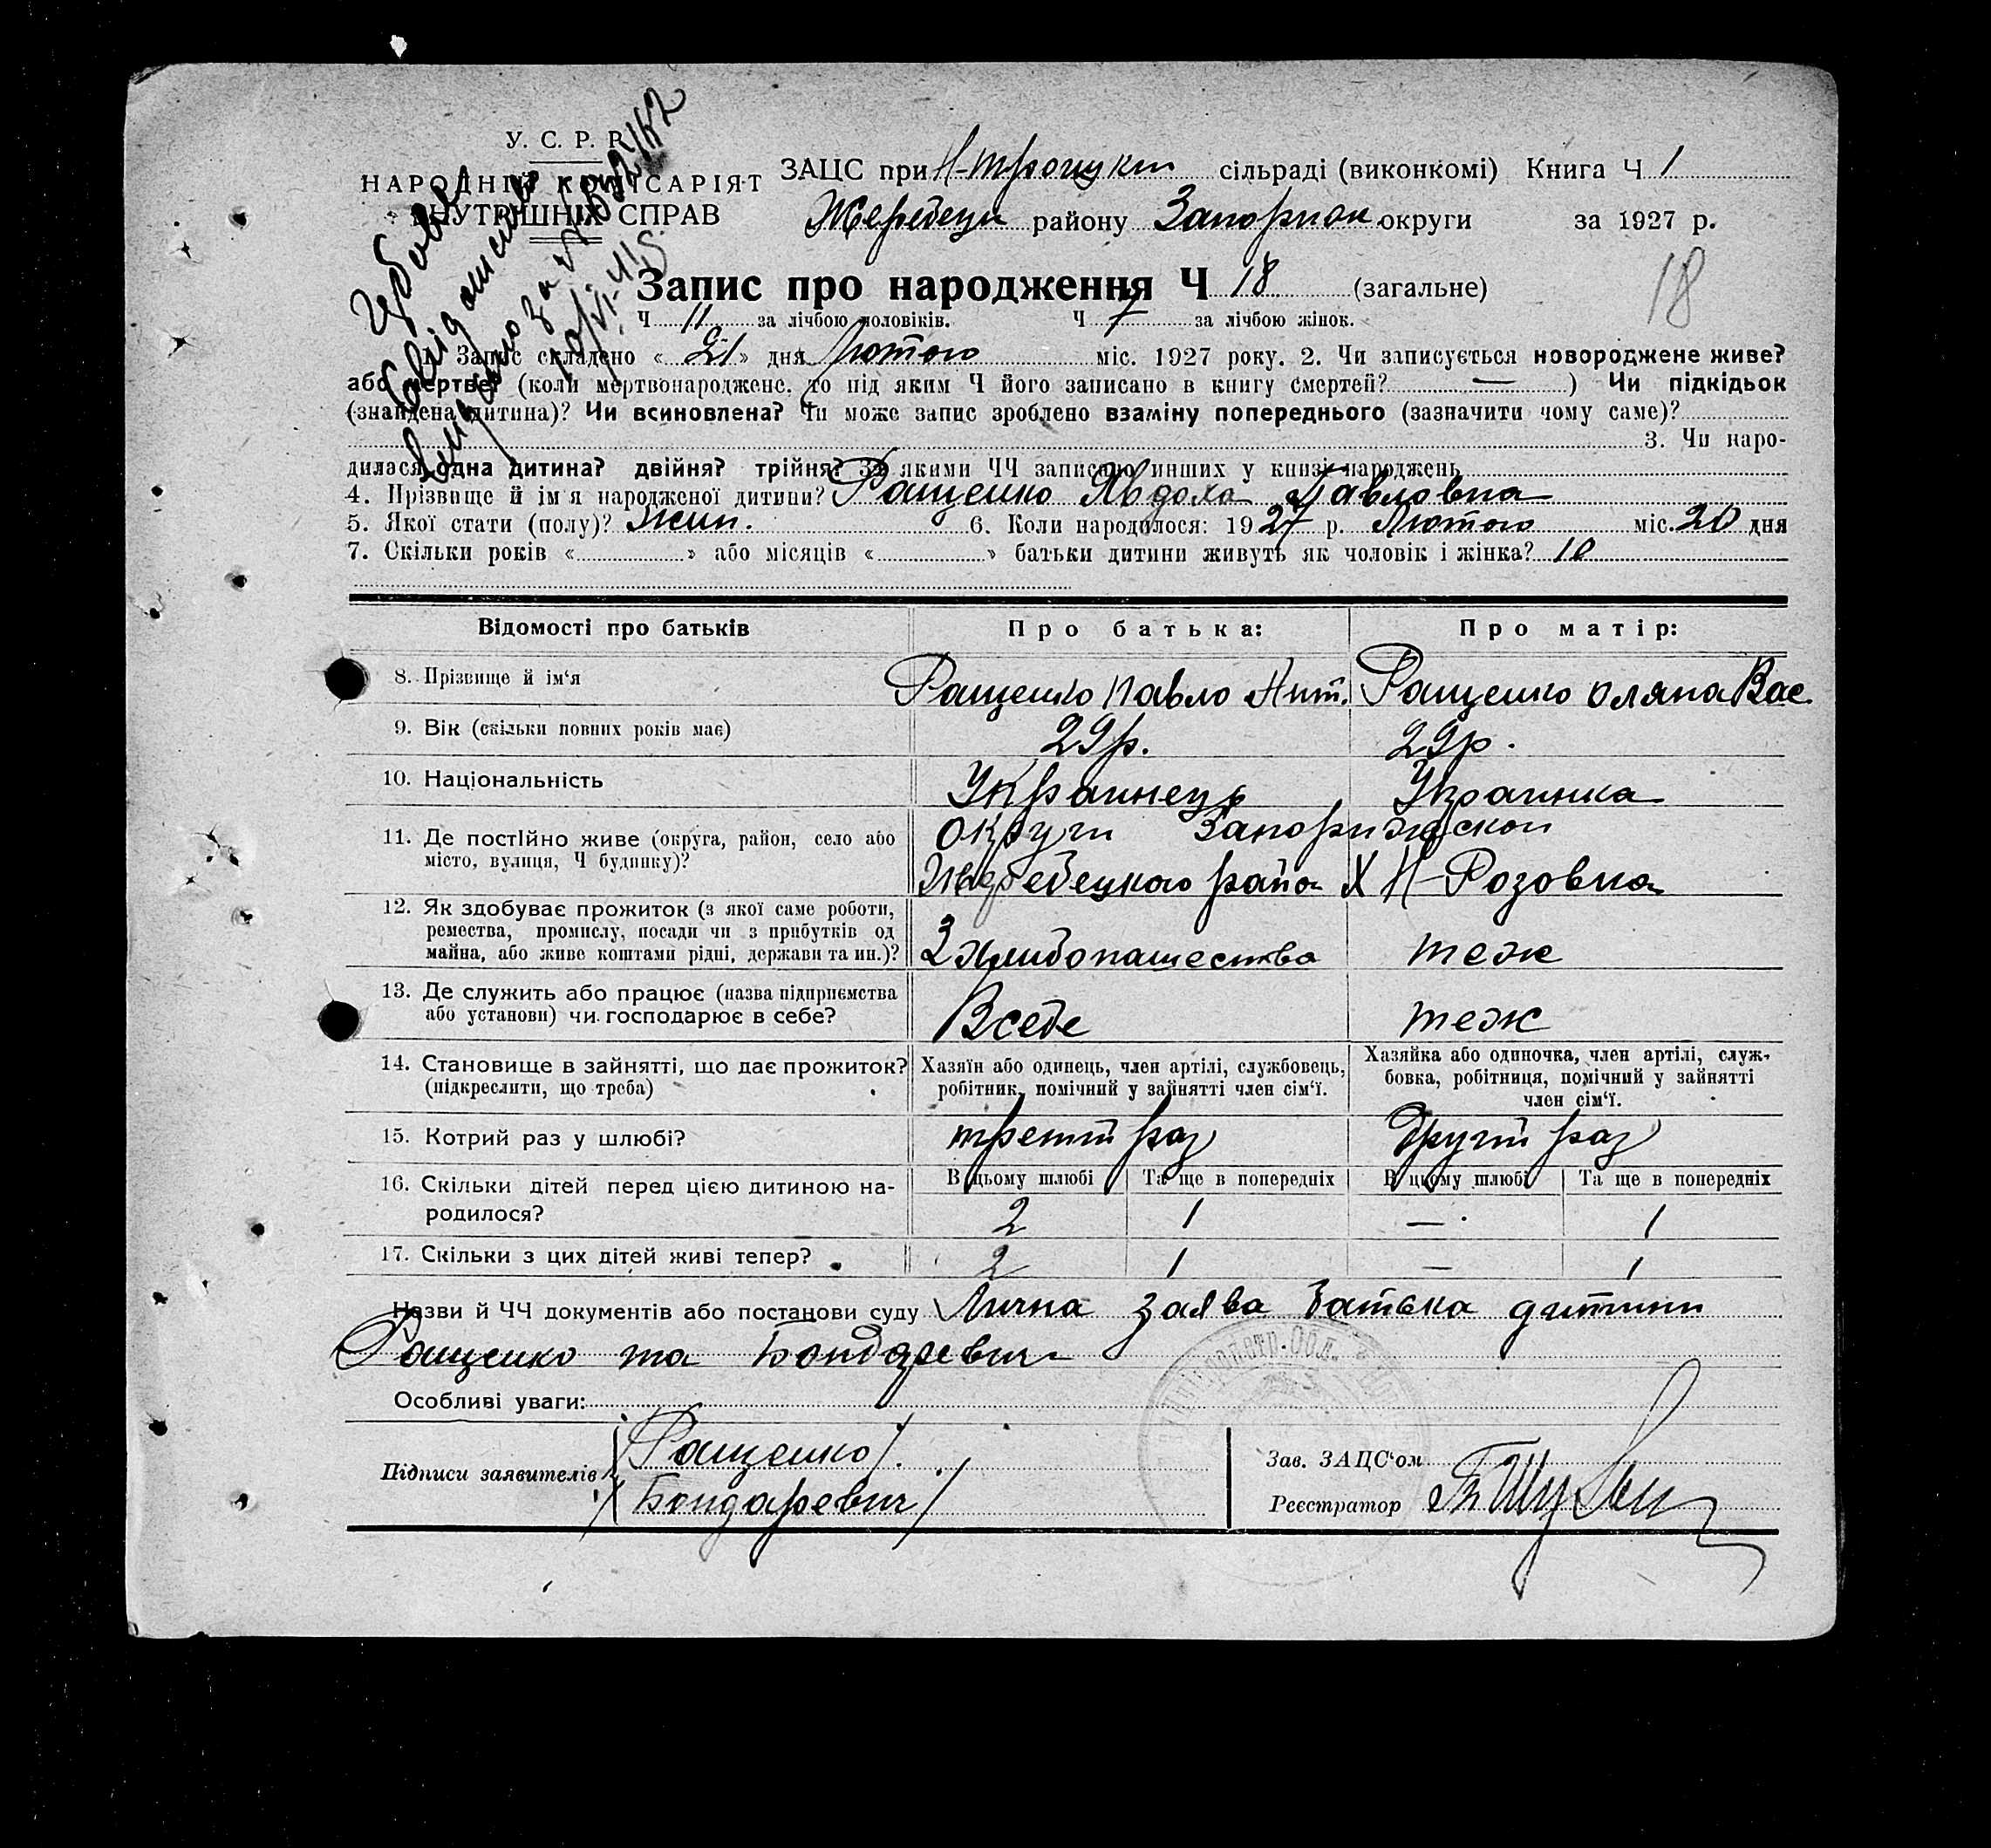 У. С. Р. Р.
НАРОДНІЙ КОМІСАРІЯТ
ВНУТРІШНІХ СПРАВ
ЗАЦС при Н-Троицкій сільраді (виконкомі) Книга Ч 1
Жеребецк району Запоріжок округи за 1927 р.
Запис про народження Ч 18 (загальне)
18
Ч 11 за лічбою чоловіків. Ч 7 за лічбою жінок.
1. Запис складено « 21 » дня Лютого міс. 1927 року. 2. Чи записується новороджене живе?
або мертве? (коли мертвонароджене, то під яким Ч його записано в книгу смертей? — ) Чи підкідьок
(знайдена дитина)? Чи всиновлена? Чи може запис зроблено взаміну попереднього (зазначити чому саме)?
3. Чи наро-
дилася одна дитина? двійня? трійня? За якими ЧЧ записано инших у книзі народжень
4. Прізвище й ім'я народженої дитини? Ращенко Явдоха Павловна
5. Якої стати (полу)? Жин. 6. Коли народилося: 1927 р. Лютого міс. 20 дня
7. Скільки років « » або місяців « » батьки дитини живуть як чоловік і жінка? 10
Відомості про батьків Про батька: Про матір:
8. Прізвище й ім'я Ращенко Павло Ант. Ращенко Оляна Вас
9. Вік (скільки повних років має) 29р. 29р.
10. Національність Украинець Украинка
11. Де постійно живе (округа, район, село або Округи Запорижскои
місто, вулиця, Ч будинку)? Жеребецкаго район Х Н-Розовка
12. Як здобуває прожиток (з якої саме роботи,
ремества, промислу, посади чи з прибутків од
майна, або живе коштами рідні, держави та ин.)? З хлибопашества теж
13. Де служить або працює (назва підприємства
або установи) чи господарює в себе? Всебе теж
14. Становище в зайнятті, що дає прожиток? Хазяїн або одинець, член артілі, службовець, Хазяйка або одиночка, член артілі, служ-
(підкреслити, що треба) робітник, помічний у зайнятті член сім'ї. бовка, робітниця, помічний у зайнятті
член сім'ї.
15. Котрий раз у шлюбі? третій раз другій раз
16. Скільки дітей перед цією дитиною на- В цьому шлюбі Та ще в попередніх В цьому шлюбі Та ще в попередніх
родилося? 2 1 — 1
17. Скільки з цих дітей живі тепер? 2 1 — 1
Назви й ЧЧ документів або постанови суду Лична заява батька дитини
Ращенко та Бондаревич
Особливі уваги:
Підписи заявителів Ращенко
Бондаревич
Зав. ЗАЦС'ом
Реєстратор